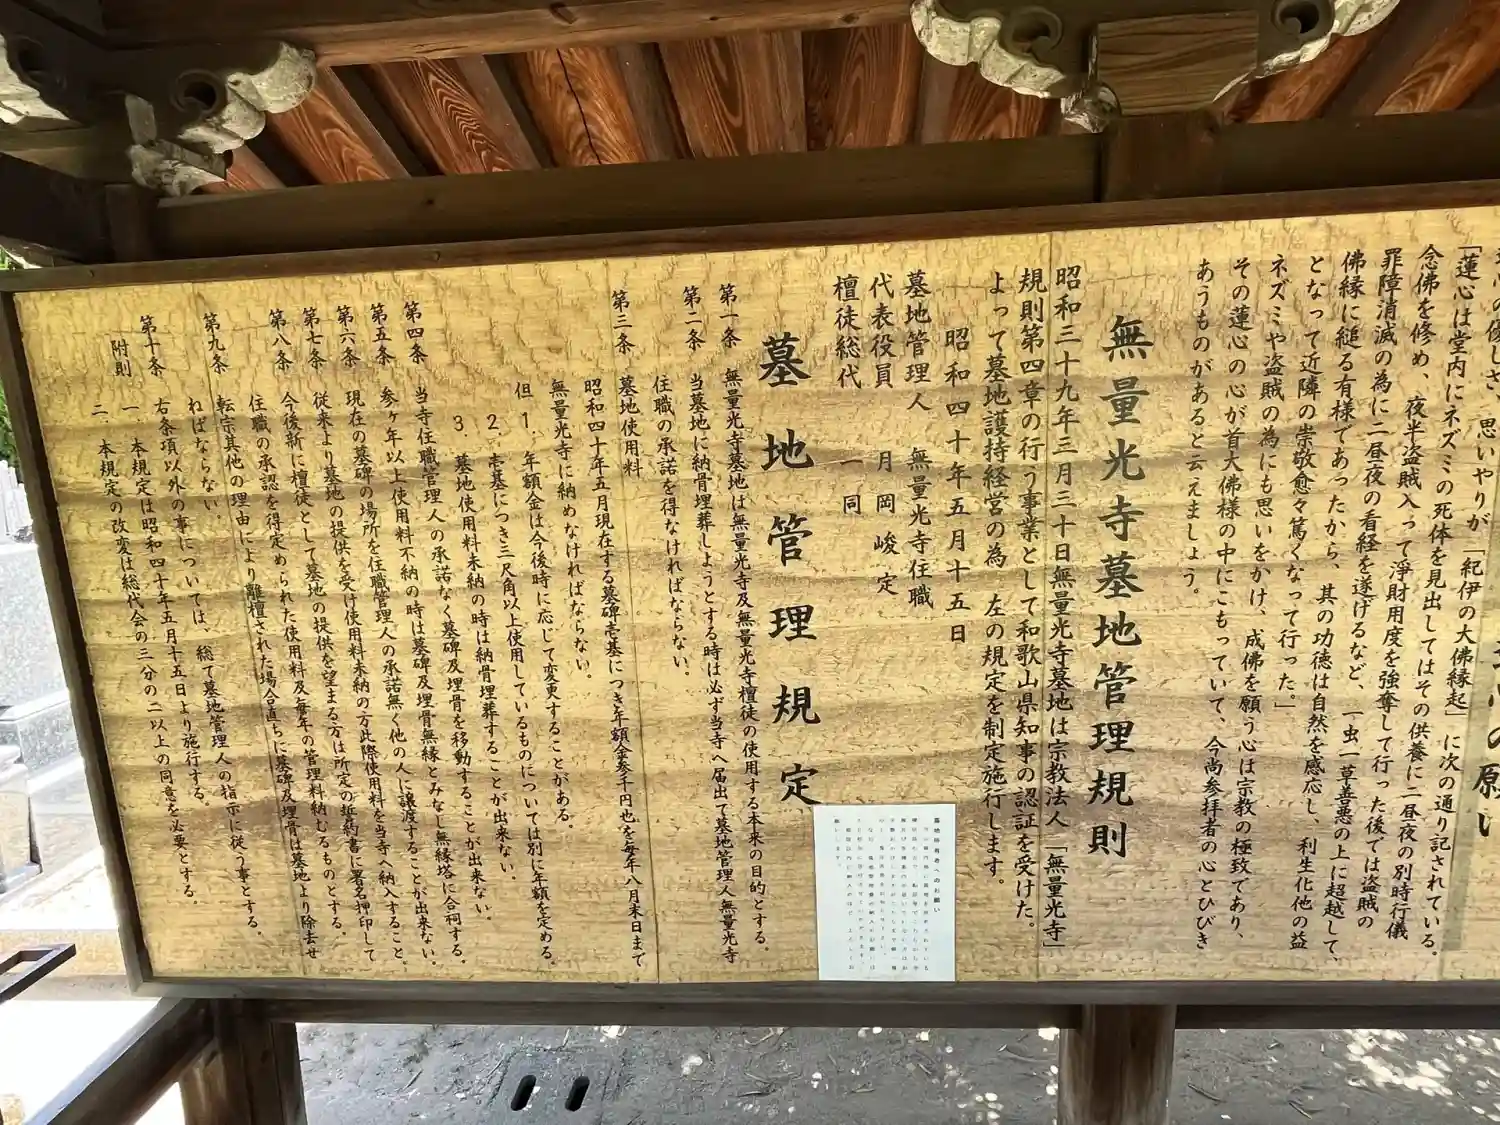 「蓮心は堂内にネズミの死体を見出してはその供養に二昼夜の別時行儀
念佛を修め、夜半盗賊入って浄財用度を強奪して行った後では盗賊の
罪障消滅の為に二昼夜の看経を遂げるなど、一虫一草善悪の上に超越して、
佛縁に縋る有様であったから、其の功徳は自然を感応し、利生化他の益
となって近隣の崇敬愈々篤くなって行った。」
ネズミや盗賊の為にも思いをかけ、成佛を願う心は宗教の極致であり、
その蓮心の心が首大佛様の中にこもっていて、今尚参拝者の心とひびき
あうものがあると云えましょう。
無量光寺墓地管理規則
昭和三十九年三月三十日無量光寺墓地は宗教法人「無量光寺」
規則第四章の行う事業として和歌山県知事の認証を受けた。
よって墓地護持経営の為、左の規定を制定施行します。
昭和四十年五月十五日
墓地管理人 無量光寺住職
代表役員 月岡峻定
檀徒総代 一同
墓地管理規定
第一条 無量光寺墓地は無量光寺及無量光寺檀徒の使用する本来の目的とする。
第二条 当墓地に納骨埋葬しようとする時は必ず当寺へ届出て墓地管理人無量光寺
住職の承諾を得なければならない。
第三条 墓地使用料
昭和四十年五月現在する墓碑壱基につき年額金参千円也を毎年八月末日まで
無量光寺に納めなければならない。
但 1. 年額金は今後時に応じて変更することがある。
2. 壱基につき三尺角以上使用しているものについては別に年額を定める。
3. 墓地使用料未納の時は納骨埋葬することが出来ない。
第四条 当寺住職管理人の承諾なく墓碑及埋骨を移動することが出来ない。
第五条 参ヶ年以上使用料不納の時は墓碑及埋骨無縁とみなし無縁塔に合祠する。
第六条 現在の墓碑の場所を住職管理人の承諾無く他の人に譲渡することが出来ない。
第七条 従来より墓地の提供を受け使用料未納の方此際使用料を当寺へ納入すること。
第八条 今後新に檀徒として墓地の提供を望まる方は所定の誓約書に署名押印して
住職の承認を得定められた使用料及毎年の管理料納むるものとする。
第九条 転宗其他の理由により離檀された場合直ちに墓碑及埋骨は墓地より除去せ
ねばならない。
第十条 右条項以外の事については、総て墓地管理人の指示に従う事とする。
附則 一、本規定は昭和四十年五月十五日より施行する。
二、本規定の改変は総代会の三分の二以上の同意を必要とする。